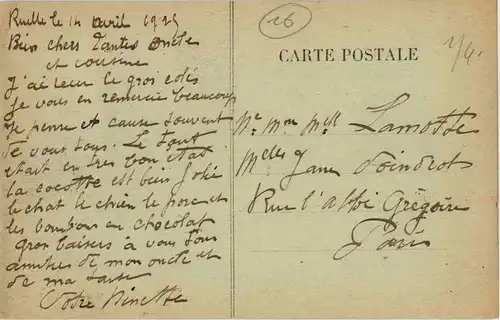 Ruelle le 14 avril 1925
Bien chers Tantes oncle
et cousine
J'ai reçu le gros colis
je vous en remercie beaucoup
Je pense et cause souvent
de vous tous. Le tout
était en très bon état
la cocotte est bien jolie
le chat le chien le porc et
les bonbons en chocolat
gros baisers à vous tous
amitiés de mon oncle et
de ma tante
Votre Ninette
26
CARTE POSTALE
Mr Mme Mell Lamotte
Melles Jane
Rue l'abbé Grégoire
Paris